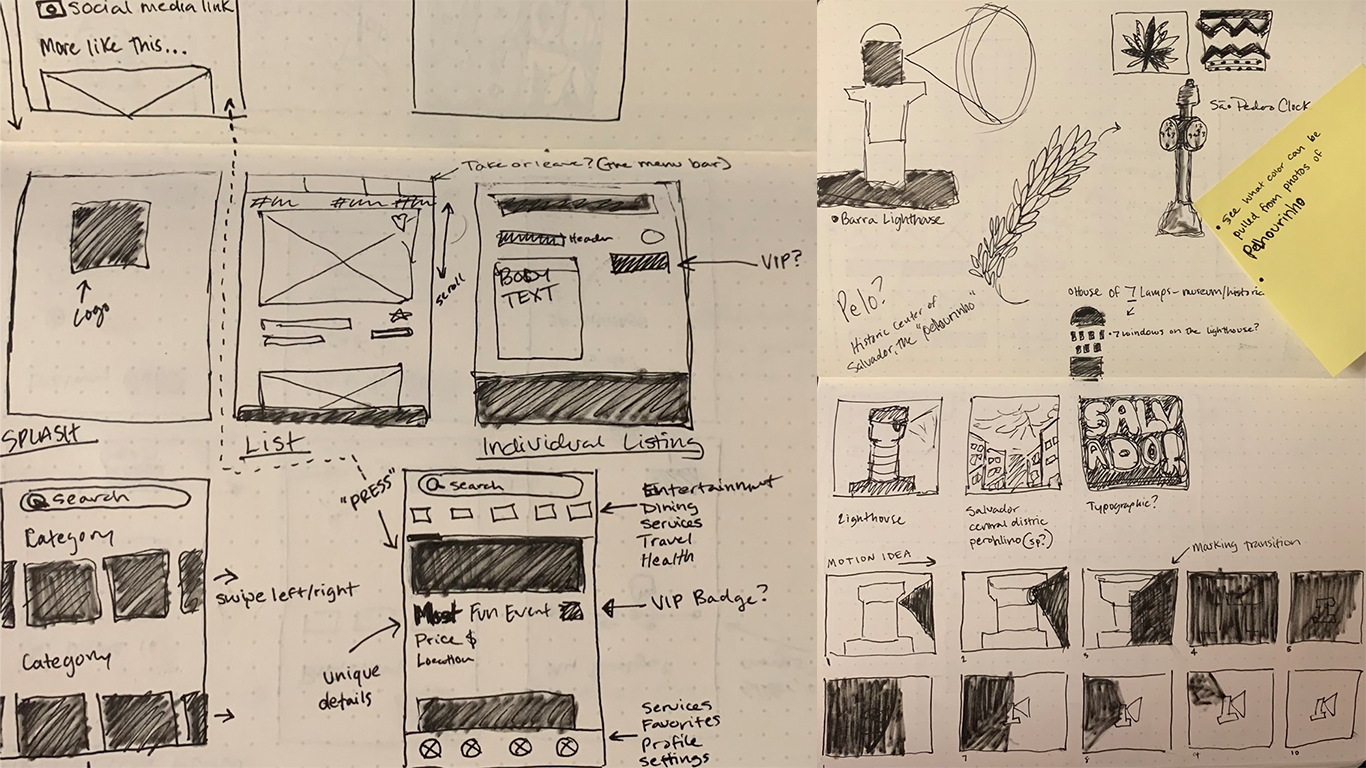 social media link
More like this...
Take or leave? (the menu bar)
Logo
scroll
Header
BODY
TEXT
VIP?
SPLASH
List
Individual Listing
search
Category
swipe left/right
Category
"PRESS"
search
Entertainment
Dining
Services
Travel
Health
Most Fun Event
VIP Badge?
Price $
Location
unique
details
Services
Favorites
Profile
settings
•Barra Lighthouse
São Pedro Clock
• See what color can be
pulled from photos of
Pelhourinho
Pelo?
Historic center of
Salvador, the "pelhourinho"
House of 7 Lamps - museum/historic
•7 windows on the lighthouse?
SALV
ADOR
Lighthouse
Salvador
central distric
perohlino (sp?)
Typographic?
MOTION IDEA
Masking transition
1
2
3
4
5
7
8
9
10